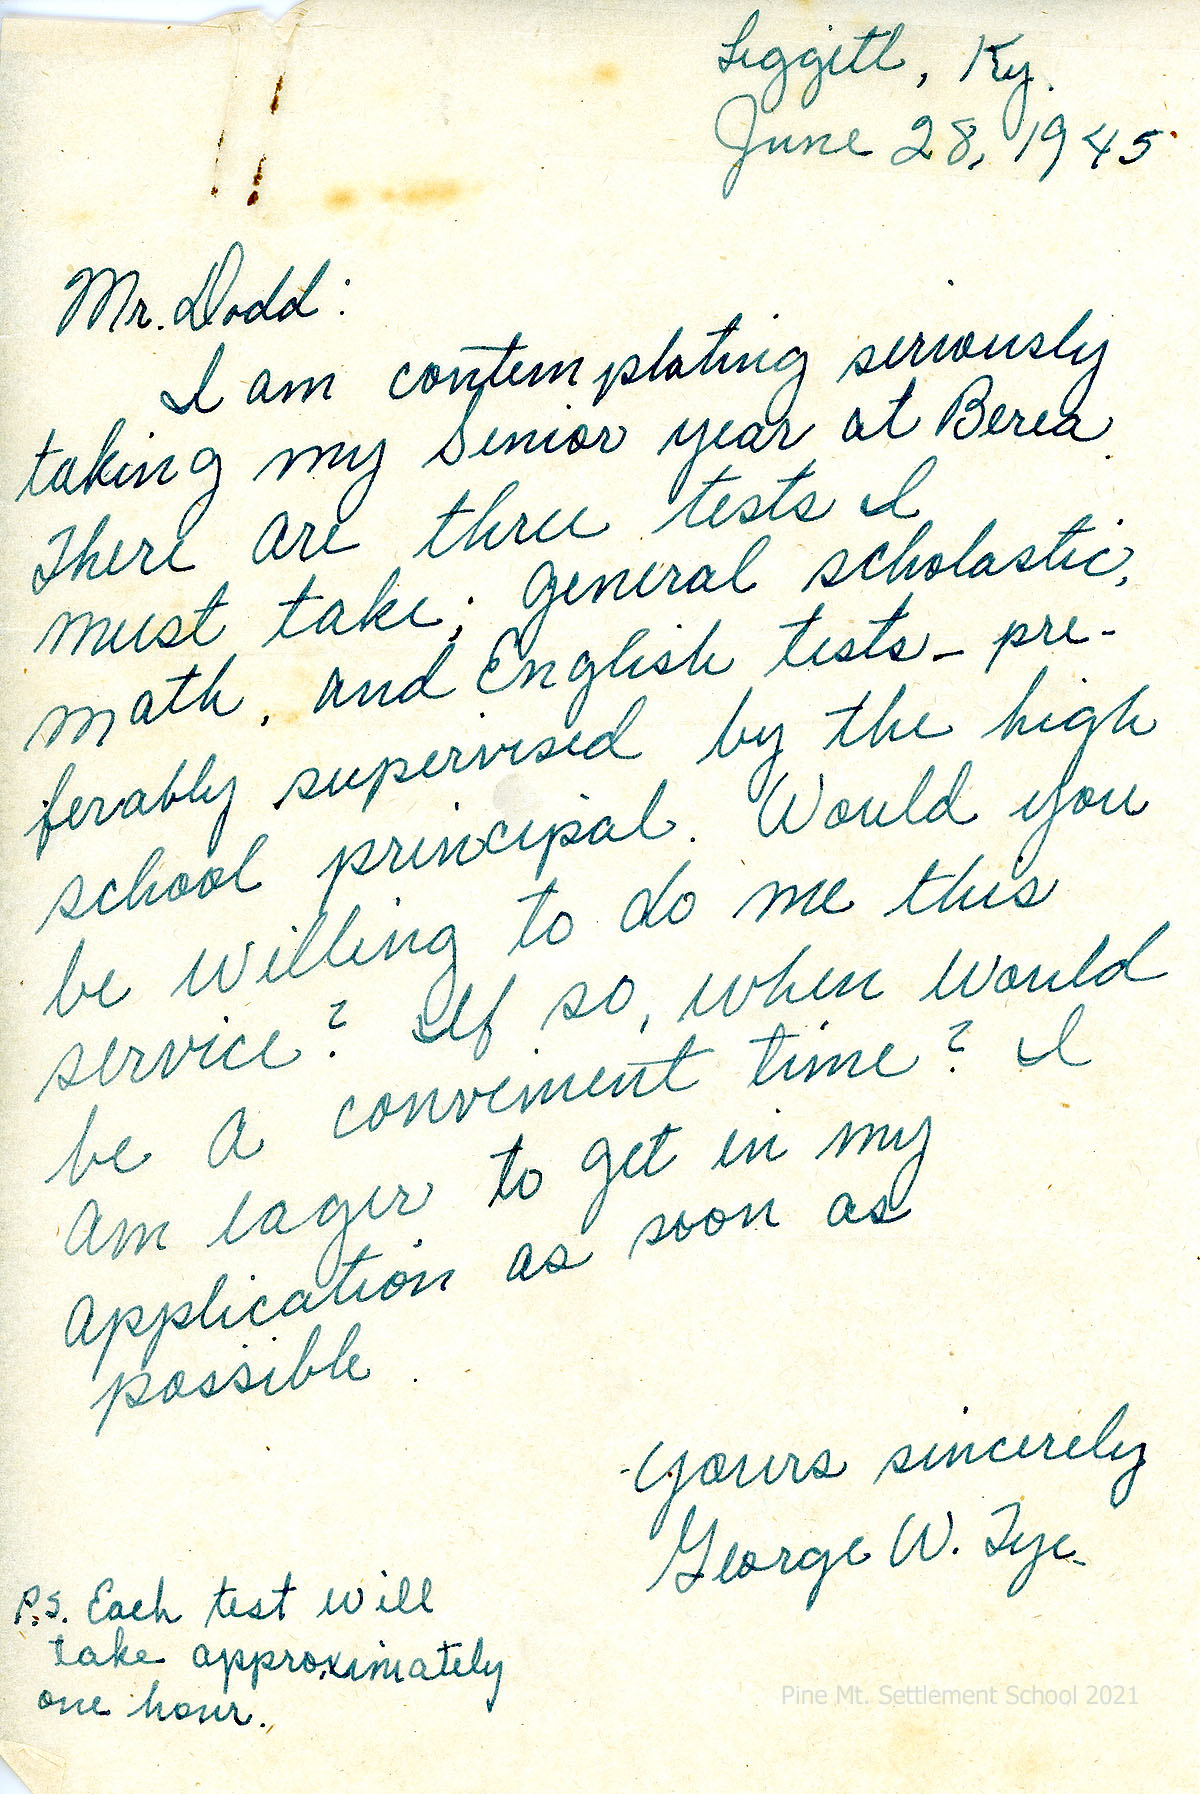 Liggitt, Ky.
June 28, 1945
Mr. Dodd:
I am contemplating seriously
taking my Senior year at Berea.
There are three tests I
must take; general scholastic,
math, and English tests - pre-
ferably supervised by the high
school principal. Would you
be willing to do me this
service? If so, when would
be a convenient time? I
am eager to get in my
application as soon as
possible.
Yours sincerely
George W. Tye
P.S. Each test will
take approximately
one hour.
Pine Mt. Settlement School 2021